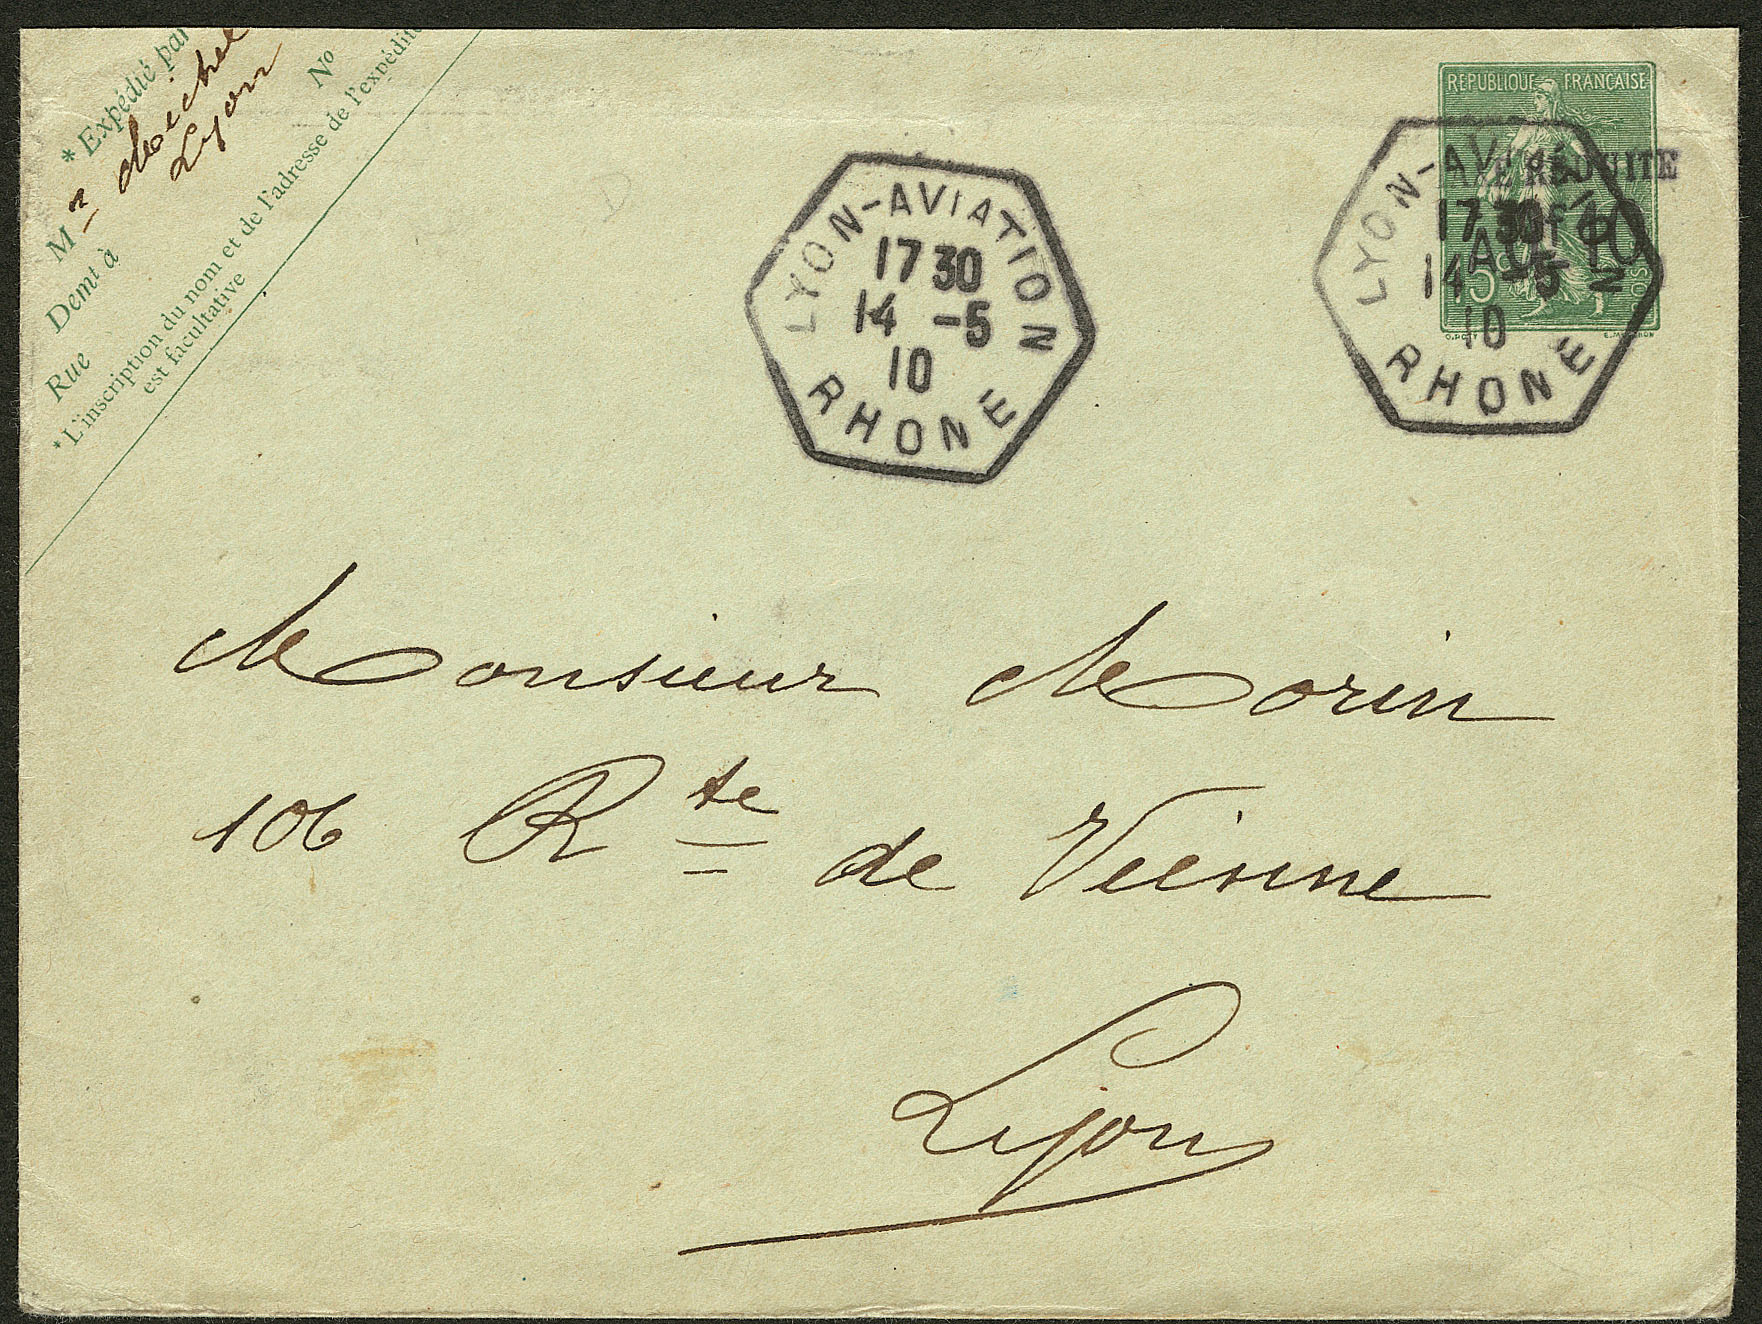 * Expédié par
Mr Michel
Lyon
Demt à
Rue
No
* L'inscription du nom et de l'adresse de l'expédit
est facultative
LYON-AVIATION
17 30
14 -5
10
RHONE
REPUBLIQUE FRANÇAISE
RÉDUITE
15c
LYON-AVIATION
17 30
14 -5
10
RHONE
Monsieur Morin
106 Rte de Vienne
Lyon